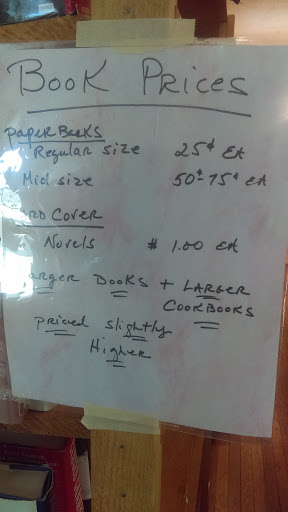 Book Prices
Paper Backs
Regular size 25¢ EA
Mid size 50¢-75¢ EA
RD COVER
Novels $ 1.00 EA
arger Books + LARGER
COOKBOOKS
priced slightly
Higher